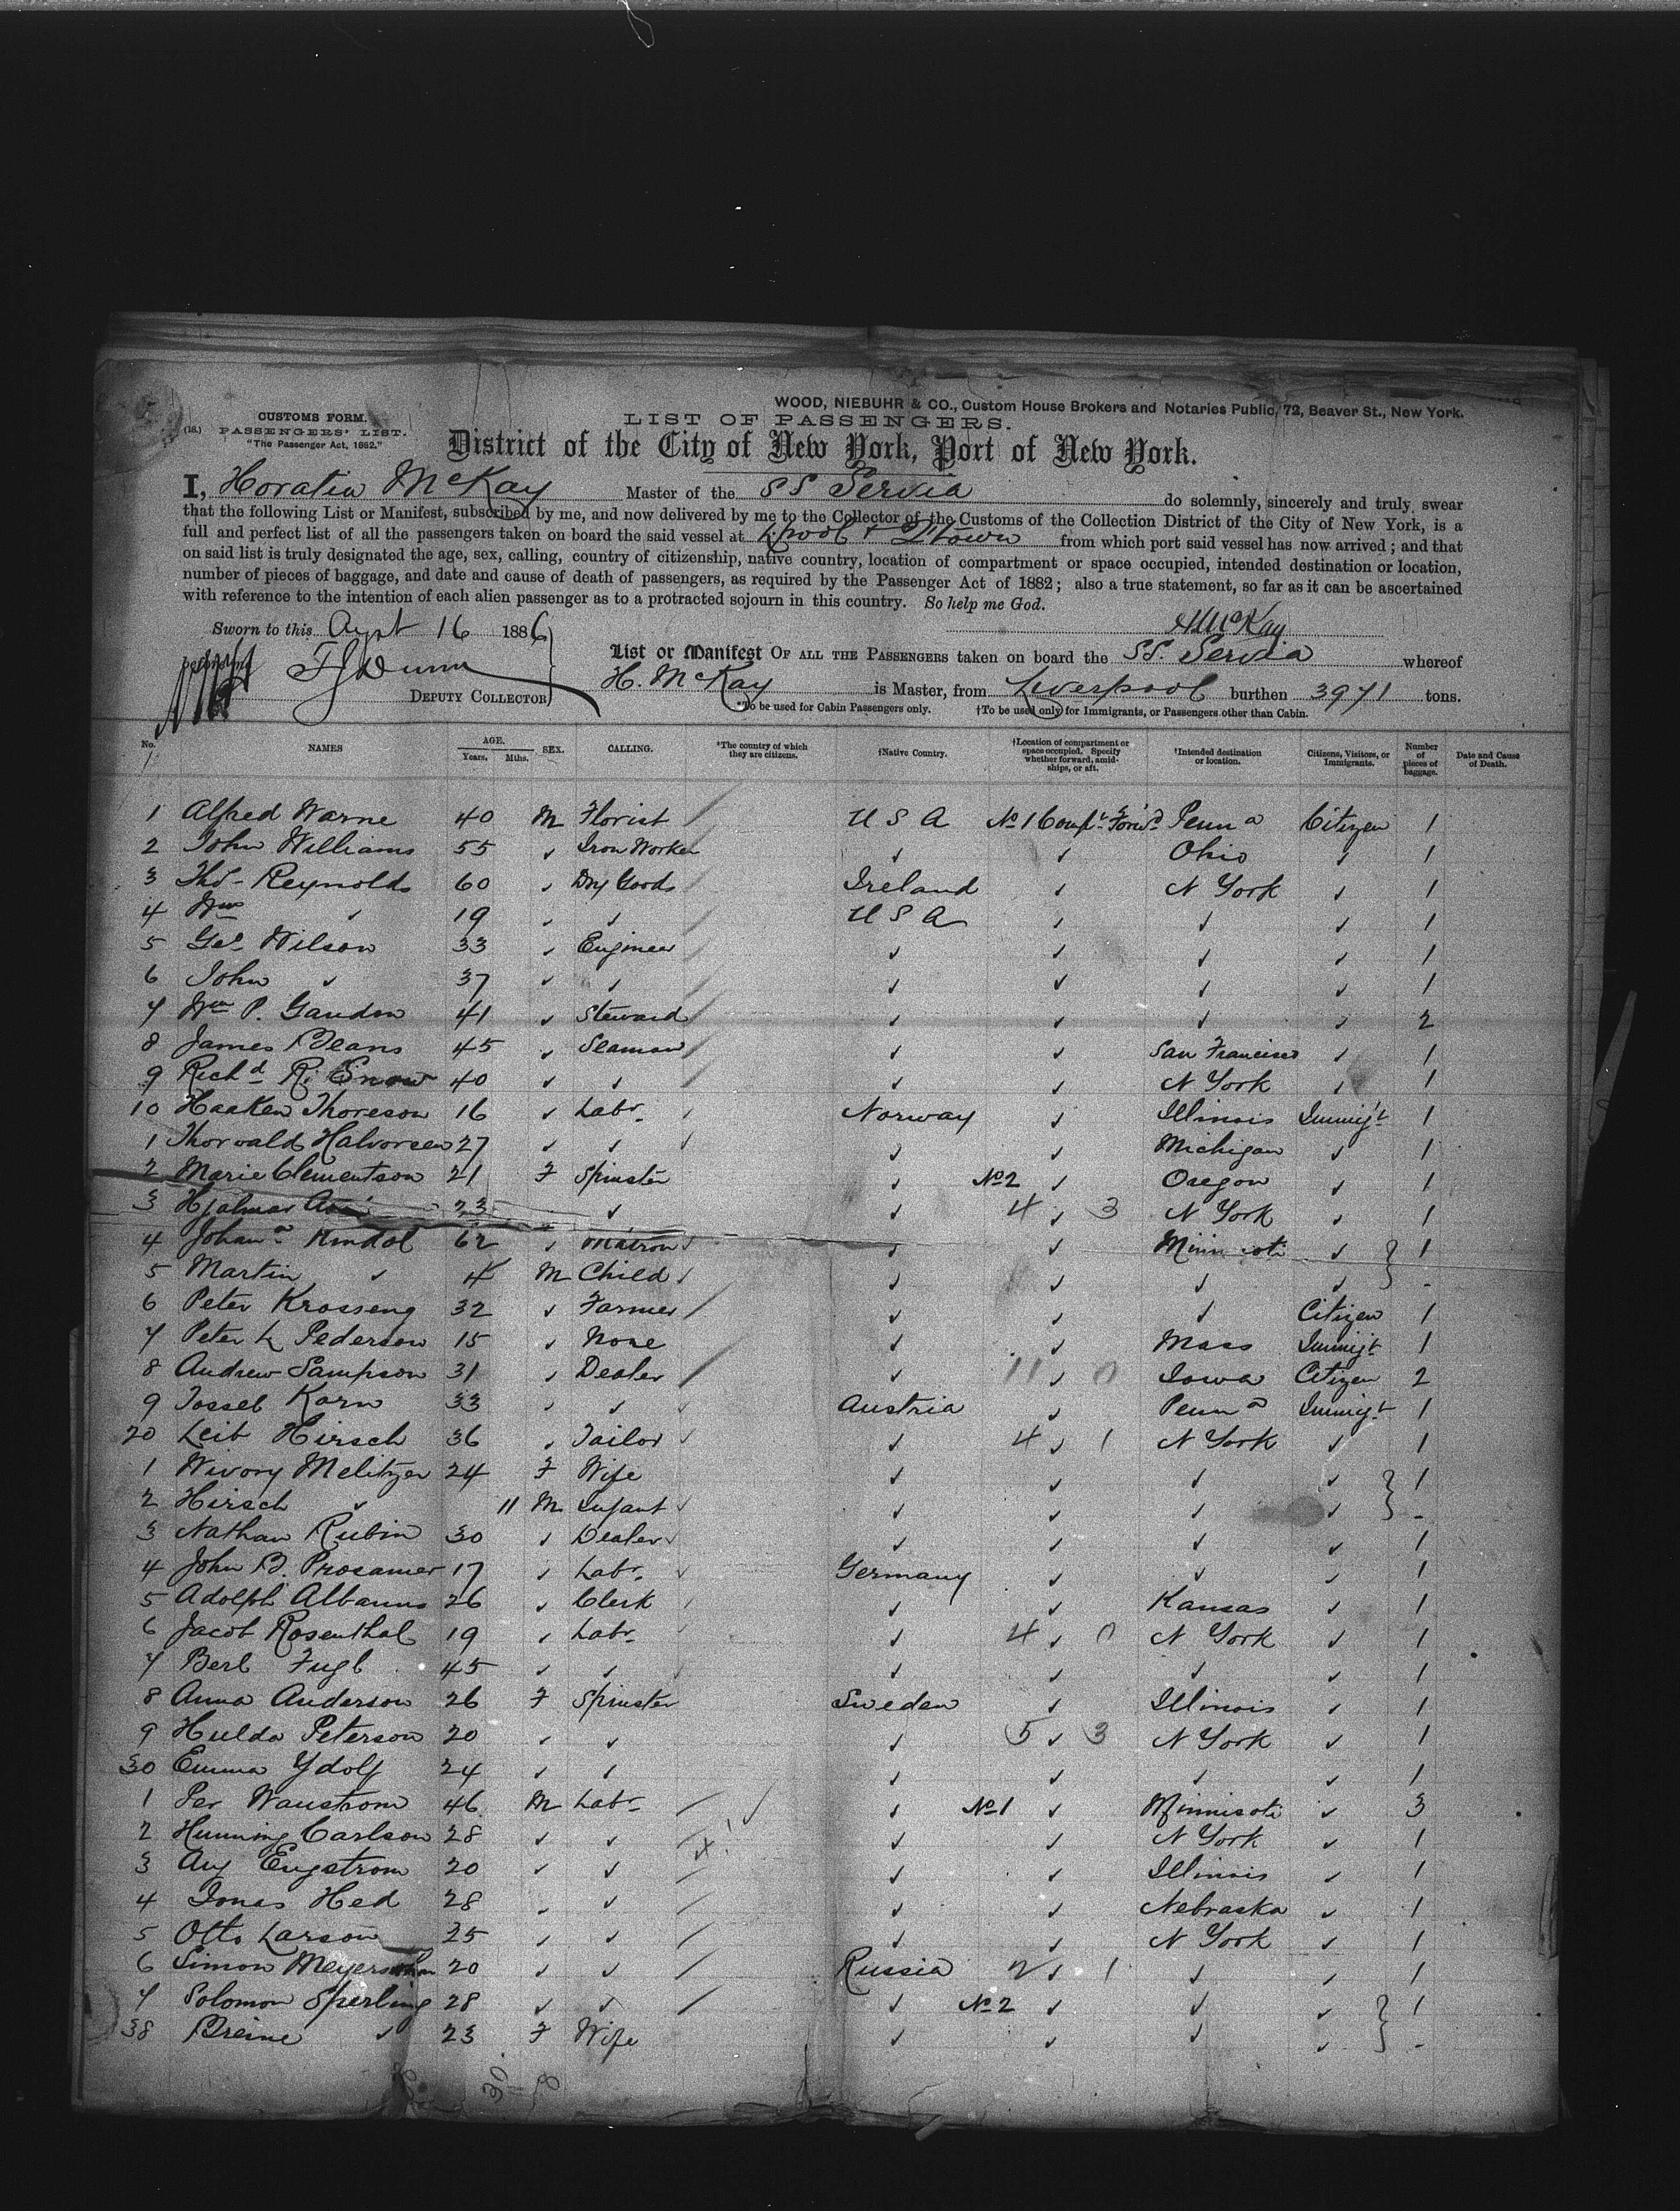 WOOD, NIEBUHR & CO., Custom House Brokers and Notaries Public, 72, Beaver St., New York.
CUSTOMS FORM.
LIST OF PASSENGERS.
(18.) PASSENGERS' LIST.
"The Passenger Act, 1882."
District of the City of New York, Port of New York.
I, Horatio McKay Master of the SS Servia do solemnly, sincerely and truly swear
that the following List or Manifest, subscribed by me, and now delivered by me to the Collector of the Customs of the Collection District of the City of New York, is a
full and perfect list of all the passengers taken on board the said vessel at L'pool & Qtown from which port said vessel has now arrived; and that
on said list is truly designated the age, sex, calling, country of citizenship, native country, location of compartment or space occupied, intended destination or location,
number of pieces of baggage, and date and cause of death of passengers, as required by the Passenger Act of 1882; also a true statement, so far as it can be ascertained
with reference to the intention of each alien passenger as to a protracted sojourn in this country. So help me God.
Sworn to this Augst 16 1886 H McKay
List or Manifest OF ALL THE PASSENGERS taken on board the SS. Servia whereof
DEPUTY COLLECTOR H. McKay is Master, from Liverpool burthen 3971 tons.
*To be used for Cabin Passengers only. †To be used only for Immigrants, or Passengers other than Cabin.
No. NAMES AGE. Years. Mths. SEX. CALLING. *The country of which they are citizens. †Native Country. †Location of compartment or space occupied. Specify whether forward, amidships, or aft. †Intended destination or location. Citizens, Visitors, or Immigrants. Number of pieces of baggage. Date and Cause of Death.
1 Alfred Warne 40 M Florist / U S A No 1 Compt Forwd Penna Citizen 1
2 John Williams 55 ✓ Iron Worker / ✓ ✓ Ohio ✓ 1
3 Thos Reynolds 60 ✓ Dry Goods / Ireland ✓ N York ✓ 1
4 Wm ✓ 19 ✓ ✓ / U S A ✓ ✓ ✓ 1
5 Geo. Wilson 33 ✓ Engineer / ✓ ✓ ✓ ✓ 1
6 John ✓ 37 ✓ ✓ / ✓ ✓ ✓ ✓ 1
7 Wm P. Gaudon 41 ✓ Steward / ✓ ✓ ✓ ✓ 2
8 James Beans 45 ✓ Seaman / ✓ ✓ San Francisco ✓ 1
9 Richd R. Snow 40 ✓ ✓ / ✓ ✓ N York ✓ 1
10 Haaken Thoreson 16 ✓ Labr / Norway ✓ Illinois Immigt 1
1 Thorvald Halvorsen 27 ✓ ✓ ✓ ✓ ✓ Michigan ✓ 1
2 Marie Clementson 21 F Spinster ✓ No 2 ✓ Oregon ✓ 1
3 Hjalmar 23 ✓ ✓ 4 ✓ 3 N York ✓ 1
4 Johana 62 ✓ Matron ✓ ✓ ✓ ✓ 1
5 Martin ✓ 4 M Child ✓ ✓ ✓ ✓ ✓ -
6 Peter Krosseng 32 ✓ Farmer / ✓ ✓ ✓ Citizen 1
7 Peter L Pederson 15 ✓ None ✓ ✓ Mass Immigt 1
8 Andrew Sampson 31 ✓ Dealer / ✓ 11 ✓ 0 Iowa Citizen 2
9 Jossel Korn 33 ✓ ✓ ✓ Austria ✓ Penna Immigt 1
20 Leib Hirsch 36 ✓ Tailor ✓ ✓ 4 ✓ 1 N York ✓ 1
1 Wivory Melitzer 24 F Wife ✓ ✓ ✓ ✓ 1
2 Hirsch ✓ 11 M Infant ✓ ✓ ✓ ✓ ✓ -
3 Nathan Rubin 30 ✓ Dealer ✓ ✓ ✓ ✓ ✓ 1
4 John B. Prosamer 17 ✓ Labr ✓ Germany ✓ ✓ ✓ 1
5 Adolph Albanus 26 ✓ Clerk / ✓ ✓ Kansas ✓ 1
6 Jacob Rosenthal 19 ✓ Labr ✓ 4 ✓ 0 N York ✓ 1
7 Berl Fugl 45 ✓ ✓ ✓ ✓ ✓ ✓ ✓ 1
8 Anna Anderson 26 F Spinster Sweden ✓ Illinois ✓ 1
9 Hulda Peterson 20 ✓ ✓ ✓ 5 ✓ 3 N York ✓ 1
30 Emma Ydolf 24 ✓ ✓ ✓ ✓ ✓ ✓ 1
1 Per Wanstrom 46 M Labr / ✓ ✓ No 1 ✓ Minnisota ✓ 3
2 Hunning Carlson 28 ✓ ✓ x ✓ ✓ N York ✓ 1
3 Aug Engstrom 20 ✓ ✓ / ✓ ✓ Illinois ✓ 1
4 Jonas Hed 28 ✓ ✓ / ✓ ✓ Nebraska ✓ 1
5 Otto Larson 25 ✓ ✓ / ✓ ✓ N York ✓ 1
6 Simon 20 ✓ ✓ / Russia 2 ✓ 1 ✓ ✓ 1
7 Solomon Sperling 28 ✓ ✓ / ✓ No 2 ✓ ✓ ✓ 1
38 Breine ✓ 23 F Wife ✓ ✓ ✓ ✓ -
30 8